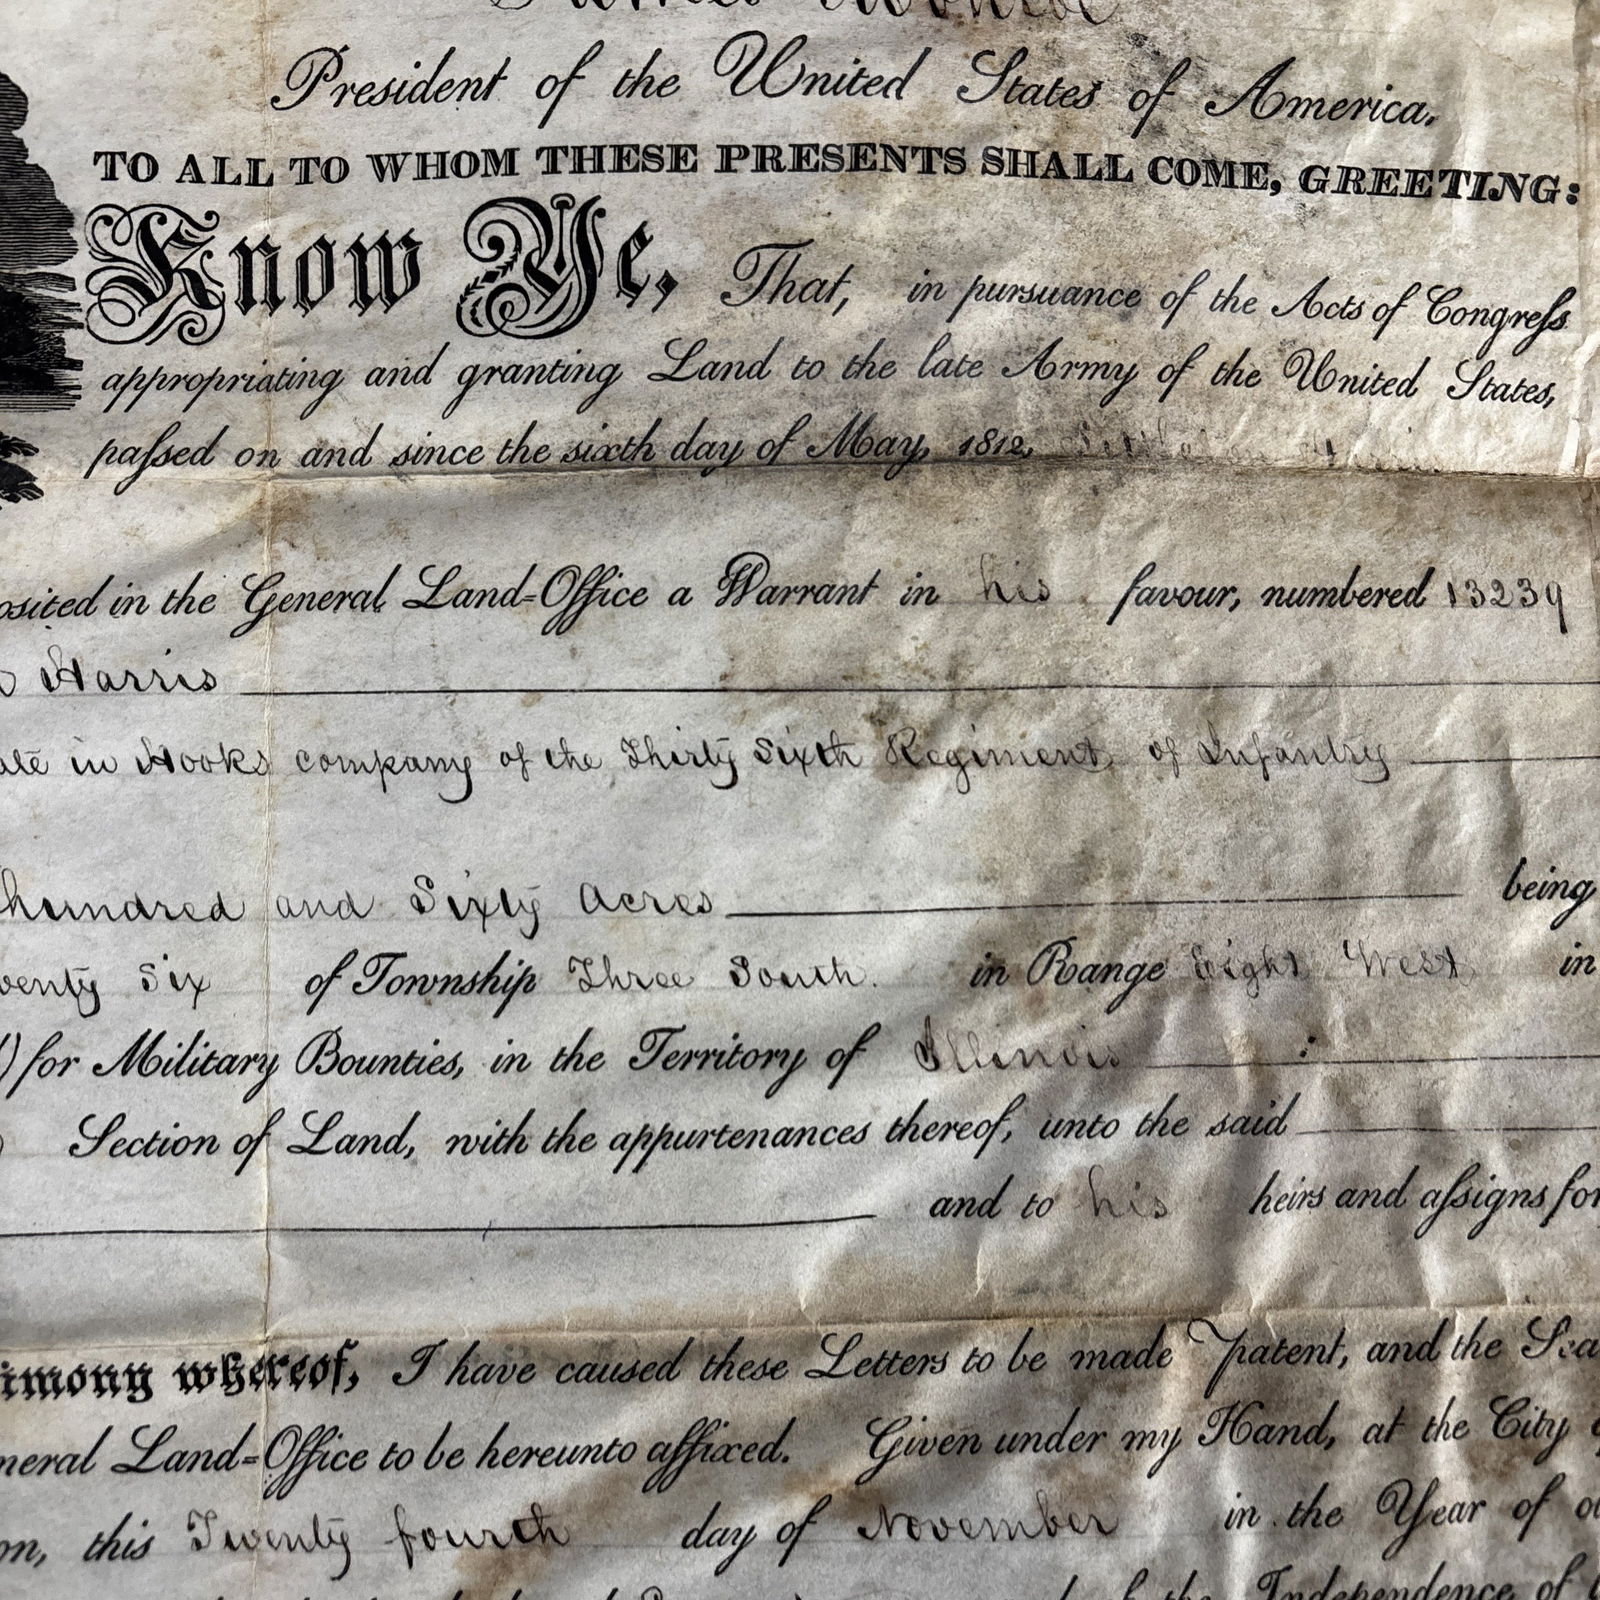 James Monroe
President of the United States of America,
TO ALL TO WHOM THESE PRESENTS SHALL COME, GREETING:
Know Ye, That, in pursuance of the Acts of Congreſs
appropriating and granting Land to the late Army of the United States,
paſsed on and since the sixth day of May, 1812,
osited in the General Land-Office a Warrant in his favour, numbered 13239
Harris
ate in Hooks company of the Thirty Sixth Regiment of Infantry
hundred and Sixty Acres being
wenty Six of Township Three South. in Range Eight West in
) for Military Bounties, in the Territory of Illinois :
Section of Land, with the appurtenances thereof, unto the said
and to his heirs and aſsigns for
imony whereof, I have caused these Letters to be made Patent, and the Sea
neral Land-Office to be hereunto affixed. Given under my Hand, at the City
on, this Twenty fourth day of November in the Year of ou
the Independence of